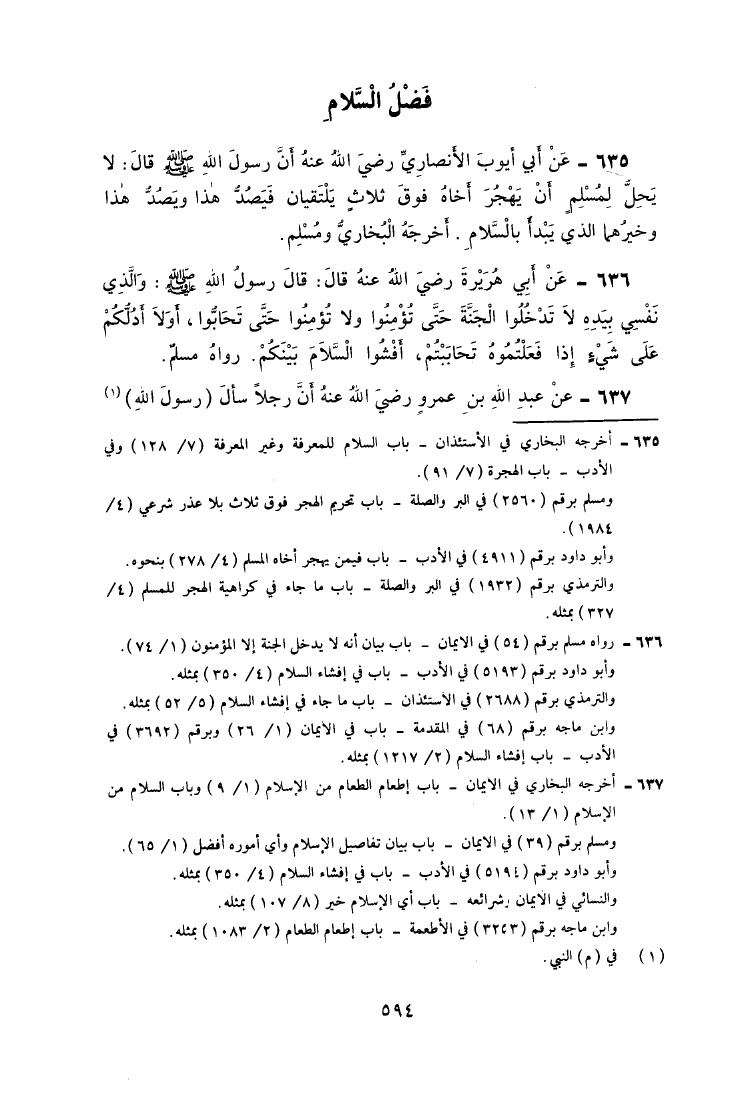 فَضْلُ السَّلامِ
٦٣٥ - عَنْ أبي أيوبَ الأنصاريِّ رضيَ اللهُ عنهُ أنَّ رسولَ اللهِ ﷺ قالَ: لا
يَحِلُّ لِمُسْلِمٍ أنْ يَهْجُرَ أخاهُ فوقَ ثلاثٍ يَلْتَقيان فَيَصُدُّ هٰذا ويَصُدُّ هٰذا
وخيرُهما الذي يَبْدأُ بالسَّلامِ. أخرجَهُ البُخاريُّ ومُسْلِم.
٦٣٦ - عَنْ أبِي هُرَيْرةَ رضيَ اللهُ عنهُ قالَ: قالَ رسولُ اللهِ ﷺ: وَالَّذِي
نَفْسِي بِيَدِهِ لاَ تَدْخُلُوا الجَنَّةَ حَتَّى تُؤْمِنُوا ولا تُؤمِنُوا حَتَّى تَحَابُّوا، أوَلاَ أدُلُّكُمْ
عَلَى شَيْءٍ إذا فَعَلْتُمُوهُ تَحَابَبْتُمْ، أفْشُوا السَّلاَمَ بَيْنَكُمْ. رواهُ مسلمٌ.
٦٣٧ - عنْ عبدِ اللهِ بنِ عمروٍ رضيَ اللهُ عنهُ أنَّ رجلاً سألَ (رسولَ اللهِ)(١)
٦٣٥ - أخرجه البخاري في الأستئذان - باب السلام للمعرفة وغير المعرفة (٧/ ١٢٨) وفي
الأدب - باب الهجرة (٧/ ٩١).
ومسلم برقم (٢٥٦٠) في البر والصلة - باب تحريم الهجر فوق ثلاث بلا عذر شرعي (٤/
١٩٨٤).
وأبو داود برقم (٤٩١١) في الأدب - باب فيمن يهجر أخاه المسلم (٤/ ٢٧٨) بنحوه.
والترمذي برقم (١٩٣٢) في البر والصلة - باب ما جاء في كراهية الهجر للمسلم (٤/
٣٢٧) بمثله.
٦٣٦ - رواه مسلم برقم (٥٤) في الايمان - باب بيان أنه لا يدخل الجنة إلا المؤمنون (١/ ٧٤).
وأبو داود برقم (٥١٩٣) في الأدب - باب في إفشاء السلام (٤/ ٣٥٠) بمثله.
والترمذي برقم (٢٦٨٨) في الاستئذان - باب ما جاء في إفشاء السلام (٥/ ٥٢) بمثله.
وابن ماجه برقم (٦٨) في المقدمة - باب في الأيمان (١/ ٢٦) وبرقم (٣٦٩٢) في
الأدب - باب إفشاء السلام (٢/ ١٢١٧) بمثله.
٦٣٧ - أخرجه البخاري في الايمان - باب إطعام الطعام من الإسلام (١/ ٩) وباب السلام من
الإسلام (١/ ١٣).
ومسلم برقم (٣٩) في الايمان - باب بيان تفاصيل الإسلام وأي أموره أفضل (١/ ٦٥).
وأبو داود برقم (٥١٩٤) في الأدب - باب في إفشاء السلام (٤/ ٣٥٠) بمثله.
والنسائي في الايمان وشرائعه - باب أي الإسلام خير (٨/ ١٠٧) بمثله.
وابن ماجه برقم (٣٢٤٣) في الأطعمة - باب إطعام الطعام (٢/ ١٠٨٣) بمثله.
(١) في (م) النبي.
٥٩٤